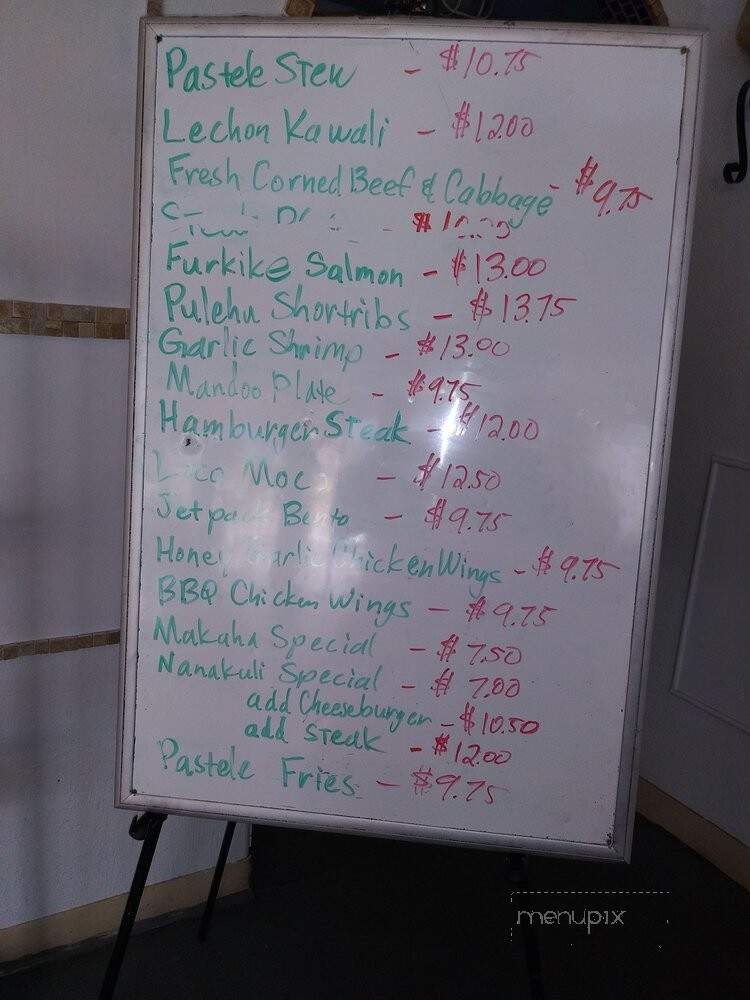 Pastele Stew - $10.75
Lechon Kawali - $12.00
Fresh Corned Beef & Cabbage - $9.75
Furkike Salmon - $13.00
Pulehu Shortribs - $13.75
Garlic Shrimp - $13.00
Mandoo Plate - $9.75
Hamburger Steak - $12.00
Loco Moco - $12.50
Jetpack Bento - $9.75
Honey Garlic Chicken Wings - $9.75
BBQ Chicken Wings - $9.75
Makaha Special - $7.50
Nanakuli Special - $7.00
add Cheeseburger - $10.50
add Steak - $12.00
Pastele Fries - $9.75
menupix